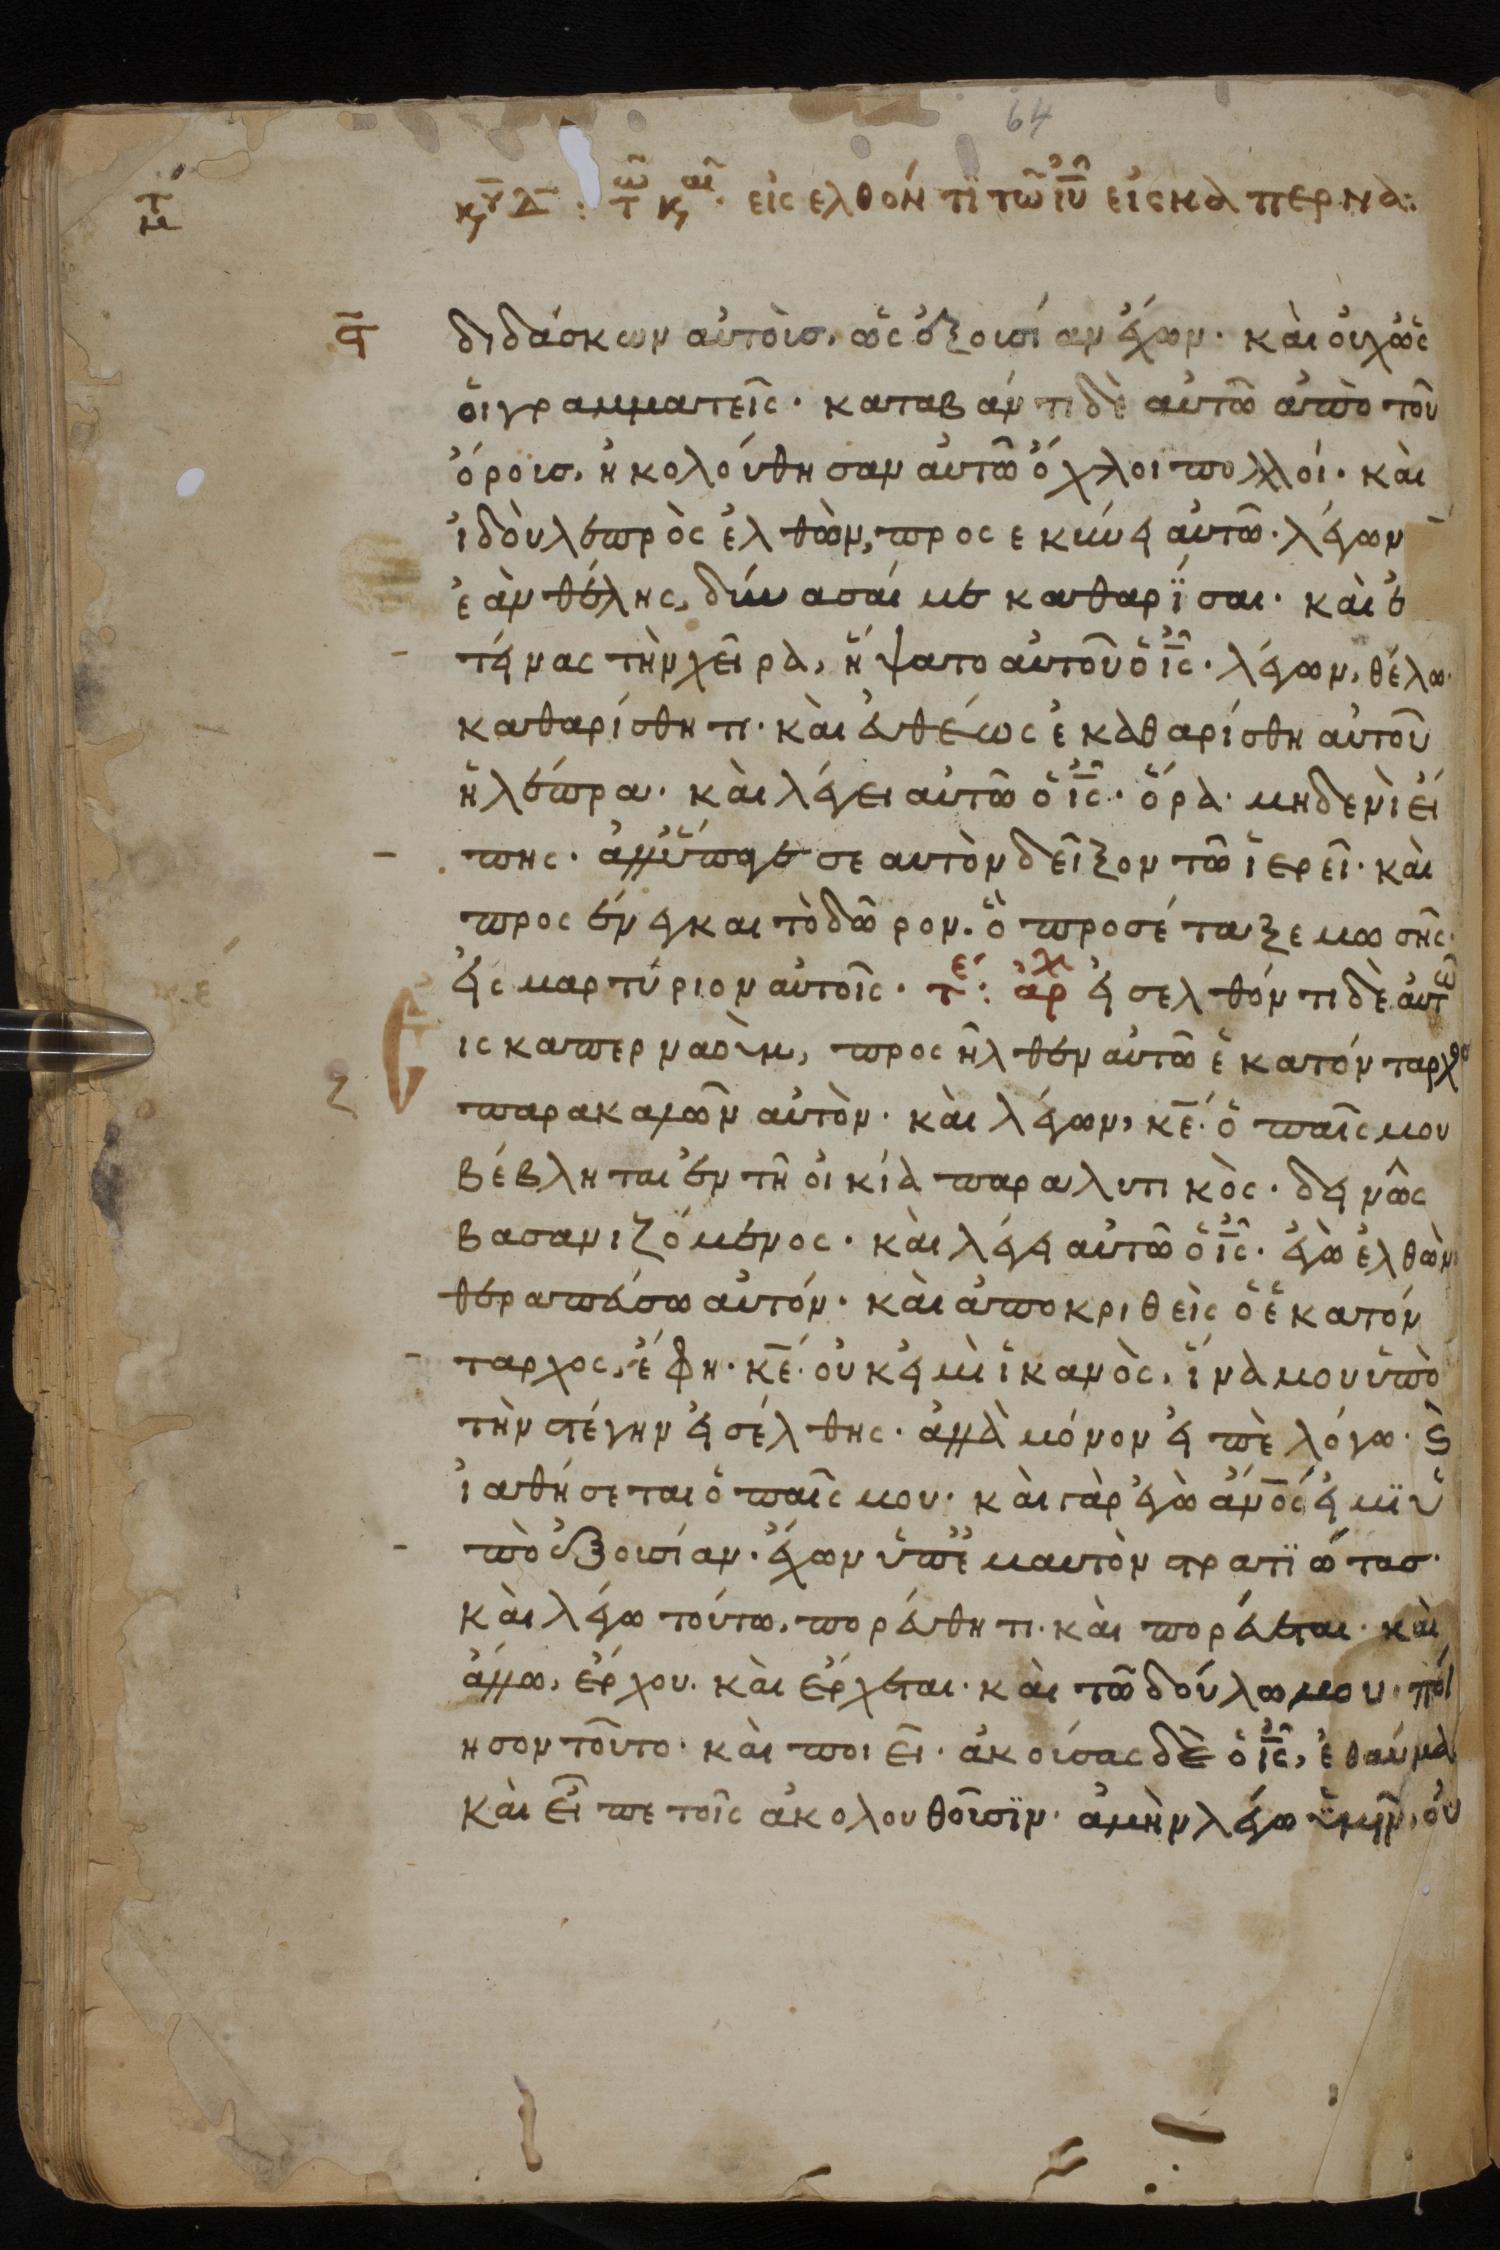 64
κυ Δ : τω και · εἰσελθόντι τῶ ἰῦ εἰς καπερνα:
διδάσκων αὐτοὺσ, ὡς ἐξουσίαν ἔχων · καὶ οὐχ ὡς
οἱ γραμματεῖς · καταβάντι δὲ αὐτῶ ἀπὸ τοῦ
ὄρουσ, ἠκολούθησαν αὐτῶ ὄχλοι πολλοί · καὶ
ἰδοὺ λεπρὸς ἐλθὼν, προσεκύνει αὐτῶ · λέγων
ἐὰν θέλης, δύνασαί με καθαρΐσαι · καὶ ἐ
τείνας τὴν χεῖρα, ἥψατο αὐτοῦ ὁ ἰς · λέγων, θέλω ·
καθαρίσθητι · καὶ εὐθέως ἐκαθαρίσθη αὐτοῦ
ἡ λέπρα · καὶ λέγει αὐτῶ ὁ ἰς · ὅρα · μηδενὶ εἴ
πης · ἀλλ' ὕπαγε σεαυτὸν δεῖξον τῶ ἱερεῖ · καὶ
προσένεγκαι τὸ δῶρον · ὃ προσέταξε μωσῆς ·
εἰς μαρτύριον αὐτοῖς · τέ : ἀρχ εἰσελθόντι δὲ αὐτῶ
ις καπερναοὺμ, προσῆλθεν αὐτῶ ἑκατόνταρχοσ
παρακαλῶν αὐτὸν · καὶ λέγων, κε · ὁ παῖς μου
βέβληται ἐν τῆ οἰκία παραλυτικὸς · δεινῶς
βασανιζόμενος · καὶ λέγει αὐτῶ ὁ ἰς · ἐγὼ ἐλθὼν
θεραπεύσω αὐτόν · καὶ ἀποκριθεὶς ὁ ἑκατόν
ταρχος, ἔφη · κε · οὐκ εἰμὶ ἱκανὸς, ἵνα μου ὑπὸ
τὴν στέγην εἰσέλθης · ἀλλὰ μόνον εἰπὲ λόγω · ϛ
ἰαθήσεται ὁ παῖς μου · καὶ γὰρ ἐγὼ ἀνος εἰμϊ ὑ
πὸ ἐξουσίαν · ἔχων ὑπ' ἐμαυτὸν στρατϊώτασ ·
καὶ λέγω τούτω, πορεύθητι · καὶ πορεύεται · καὶ
ἄλλω, ἔρχου · καὶ ἔρχεται · καὶ τῶ δούλω μου · ποί
ησον τοῦτο · καὶ ποιεῖ · ἀκούσας δὲ ὁ ἰς, ἐθαύμα
καὶ εἶπε τοῖς ἀκολουθοῦσϊν · ἀμὴν λέγω ὑμῖν, οὐ